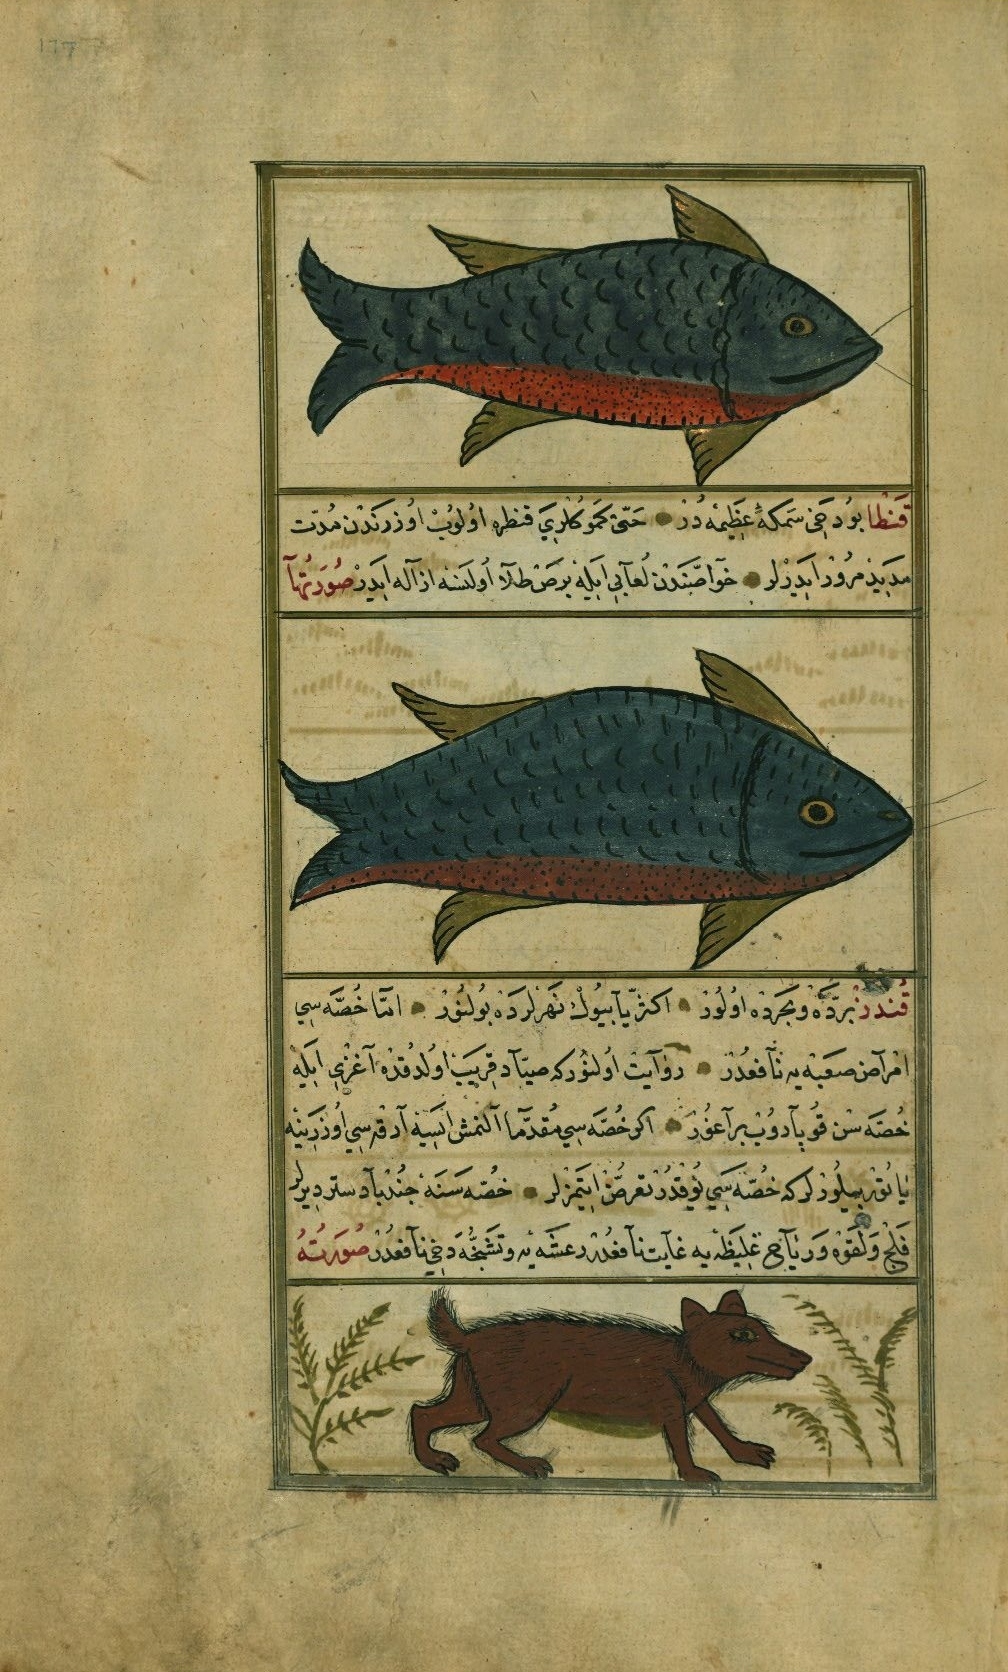 ١٢٣
قَنطا بو دخی سَمكهٔ عَظِیمه دُرْ حَتّی كموكلرِی قنطره اولوُبْ اوُزرندن مُدّت
مدیذ مروُر ایدرْلر خوَاصّندن لُعابی ایله برص طلآ اولنسَه ازاله ایدر صُورتها
قُندرْ بردّه و بحرده اوُلوُرْ اكثر یا بیُوك نَهرلرده بوُلنُورْ امّا خُصّه سی
امرآض صَعبه یه نآفعدُرْ روَآیت اوُلنوُر كه صیّآد قریبْ اوُلدقده آغزی ایله
خُصّه سن قوُپآروُب برآغوُرْ اكر خُصّه سی مُقدّمآ آلنمش ایسَه آرقه سی اوُزرینه
یاتوُر بیلوُرلر كه خُصّه سَی یُوقدُرْ تعرّضْ ایتمزلر خصّه سنَه جُندْبآدستر دیرلر
فلج وَ لقوَه وَ ریآح غلیظه یه غآیت نآفعدُرْ رعشه یه و تشنّجه دخی نآفعدُرْ صُورتهُ